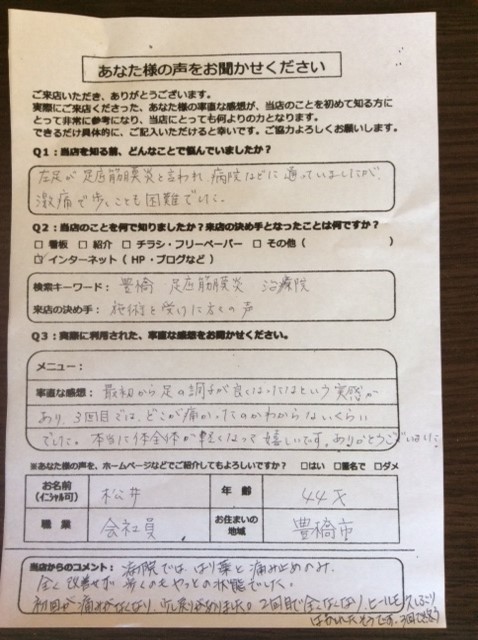 あなた様の声をお聞かせください
ご来店いただき、ありがとうございます。
実際にご来店くださった、あなた様の率直な感想が、当店のことを初めて知る方に
とって非常に参考になり、当店にとっても何よりの力となります。
できるだけ具体的に、ご記入いただけると幸いです。ご協力よろしくお願いします。
Q1：当店を知る前、どんなことで悩んでいましたか？
左足が足底筋膜炎と言われ、病院などに通っていましたが、
激痛で歩くことも困難でした。
Q2：当店のことを何で知りましたか？来店の決め手となったことは何ですか？
□ 看板 □ 紹介 □ チラシ・フリーペーパー □ その他（ ）
☑ インターネット（HP・ブログなど）
検索キーワード： 豊橋 足底筋膜炎 治療院
来店の決め手： 施術を受けた方の声
Q3：実際に利用された、率直な感想をお聞かせください。
メニュー：
率直な感想： 最初から足の調子が良くなったなという実感が
あり、3回目では、どこが痛かったのかわからないくらい
でした。本当に体全体が軽くなって嬉しいです。ありがとうございました。
※あなた様の声を、ホームページなどでご紹介してもよろしいですか？ □はい □匿名で □ダメ
お名前（イニシャル可） 松井 年齢 44才
職業 会社員 お住まいの地域 豊橋市
当店からのコメント： 病院では、はり薬と痛み止めのみ。
全く改善せず 歩くのもやっとの状態でした。
初回で痛みがなくなり、少し戻りがありました。2回目で全くなくなり、ヒールも久しぶり
にはおれたそうです。3回で